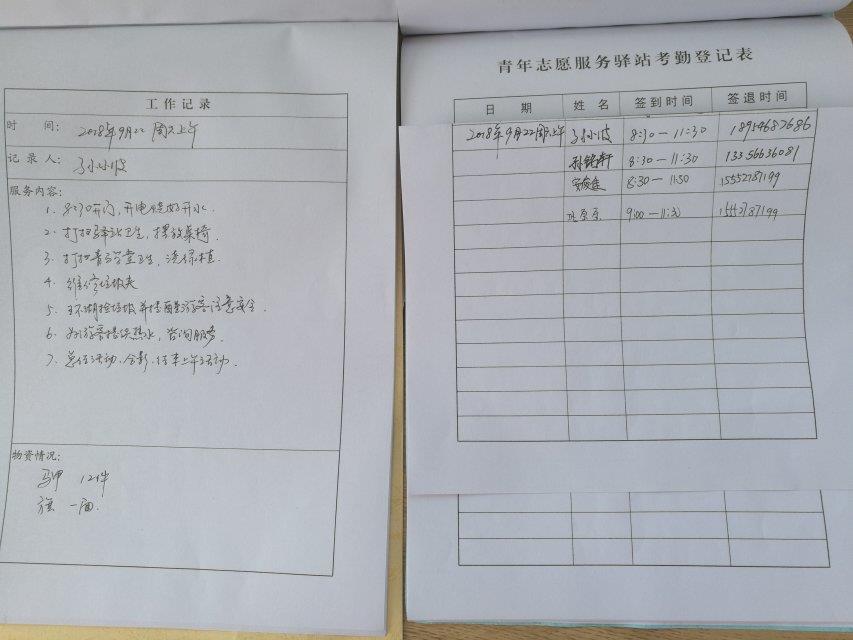 工作记录
时 间: 2018年9月22 周六上午
记录人: 孙小波
服务内容:
1. 8:30开门, 开电烧好开水.
2. 打扫驿站卫生, 摆放桌椅.
3. 打扫青年学堂卫生, 浇绿植.
4. 维修垃圾夹
5. 环湖捡垃圾并提醒游客注意安全.
6. 为游客提供热水, 咨询服务.
7. 总结活动, 合影, 结束上午活动.
物资情况:
马甲 12件
旗 一面.
青年志愿服务驿站考勤登记表
日 期 姓 名 签到时间 签退时间
2018年9月22周六上午 孙小波 8:30-11:30 18954687686
孙铭轩 8:30-11:30 13356636081
安俊逸 8:30-11:30 15552787199
9:00-11:30 15552787199